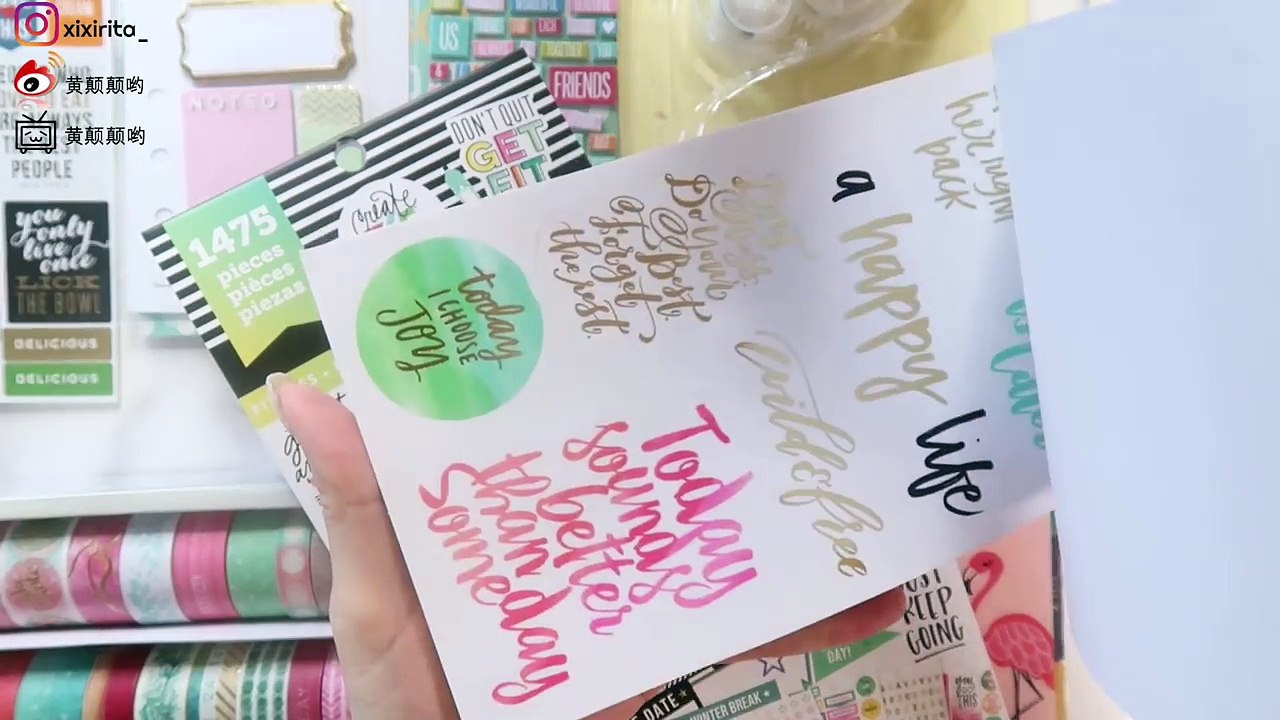 xixirita_
黄颠颠哟
黄颠颠哟
EAT
THE BEST
PEOPLE
you
only
live
once
LICK
THE BOWL
DELICIOUS
DELICIOUS
NOTED
US
EACH
TOGETHER
FRIENDS
DON'T QUIT
GET
create
1475
pieces
pièces
piezas
today
I CHOOSE
JOY
Do Your
Best
& forget
the rest.
Today
sounds
better
than
someday
wild & free
a
happy
life
her night
back
KEEP
GOING
DAY!
DATE
WINTER BREAK
THIS